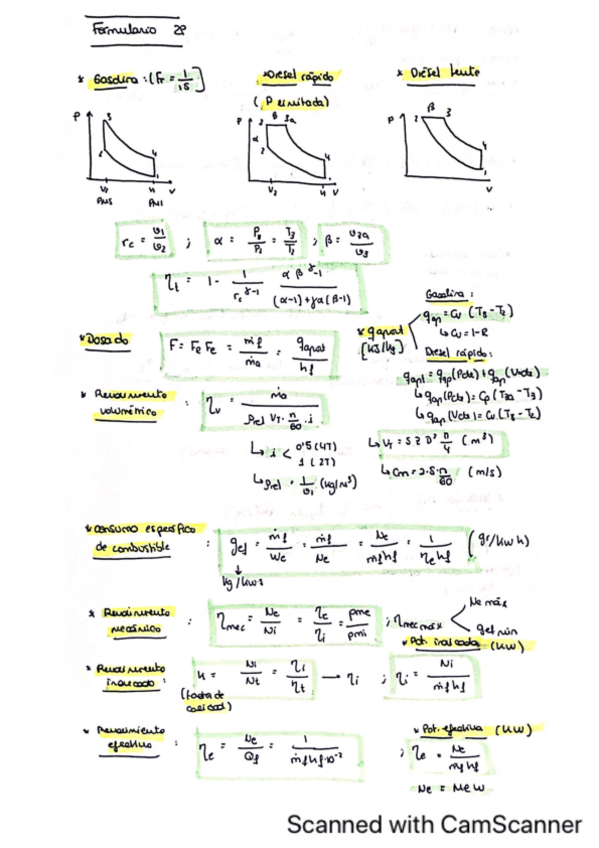 Formulario 2º
* Gasolina : (Fr = 1/15)
* Diesel rápido
(P limitada)
* Diesel lento
P 3 2 4 1 V
V2 V1
PMS PMI
P 3 β 3a α 2 4 1 V
V2 V1
P 2 β 3 4 1 V
rc = v1/v2 ; α = P3/P2 = T3/T2 ; β = v3a/v3
ηt = 1 - 1/rc^γ-1 · (α β^γ - 1)/((α-1)+γα(β-1))
* Dosado
F = Fr Fe = ṁf/ṁa = qapart/hf
* qapart [kJ/kg]
Gasolina :
qap = Cv (T3 - T2)
↳ Cv = 1-R
Diesel rápido :
qapt = qap (Pcte) + qap (Vcte)
↳ qap (Pcte) = Cp (T3a - T3)
↳ qap (Vcte) = Cv (T3 - T2)
* Rendimiento volumétrico :
ηv = ṁa/(ρrel VT · n/60 · i)
↳ i < 0'5 (4T)
1 (2T)
↳ ρrel = 1/v1 (kg/m³)
↳ VT = S z D² π/4 (m³)
↳ Cm = 2·S·n/60 (m/s)
* Consumo específico de combustible :
gef = ṁf/We = ṁf/Ne = Ne/ṁfhf = 1/ηehf (gr/kw h)
kg/kws
* Rendimiento mecánico :
ηmec = Ne/Ni = ηe/ηi = pme/pmi ; ηmec máx < Ne máx
gef min
* Rendimiento indicado :
k = Ni/Nt = ηi/ηt → ηi
(factor de calidad)
* Pot. indicada (kw)
; ηi = Ni/ṁfhf
* Rendimiento efectivo :
ηe = Ne/Qf = 1/ṁfhf·10⁻²
* Pot. efectiva (kw)
; ηe = Ne/ṁfhf
Ne = Me w
Scanned with CamScanner